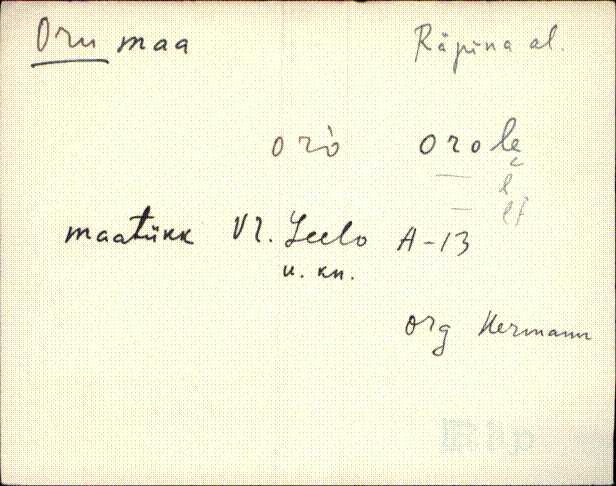 Oru maa Räpina al.
orò orole
— l
— lt
maatükk Vr. Leelo A-13
u. kn.
org Hermann